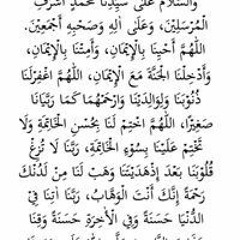 والسلام على سيدنا محمد أشرف
الْمُرْسَلِيْنَ، وَعَلَى اٰلِهِ وَصَحْبِهِ أَجْمَعِيْنَ.
اَللّٰهُمَّ أَحْيِنَا بِالْإِيْمَانِ، وَأَمِتْنَا بِالْإِيْمَانِ،
وَأَدْخِلْنَا الْجَنَّةَ مَعَ الْإِيْمَانِ، اَللّٰهُمَّ اغْفِرْلَنَا
ذُنُوْبَنَا وَلِوَالِدَيْنَا وَارْحَمْهُمَا كَمَا رَبَّيَانَا
صَغِيْرًا، اَللّٰهُمَّ اخْتِمْ لَنَا بِحُسْنِ الْخَاتِمَةِ وَلَا
تَخْتِمْ عَلَيْنَا بِسُوْءِ الْخَاتِمَةِ، رَبَّنَا لَا تُزِغْ
قُلُوْبَنَا بَعْدَ إِذْهَدَيْتَنَا وَهَبْ لَنَا مِنْ لَدُنْكَ
رَحْمَةً إِنَّكَ أَنْتَ الْوَهَّابُ، رَبَّنَا اٰتِنَا فِي
الدُّنْيَا حَسَنَةً وَفِي الْاٰخِرَةِ حَسَنَةً وَقِنَا